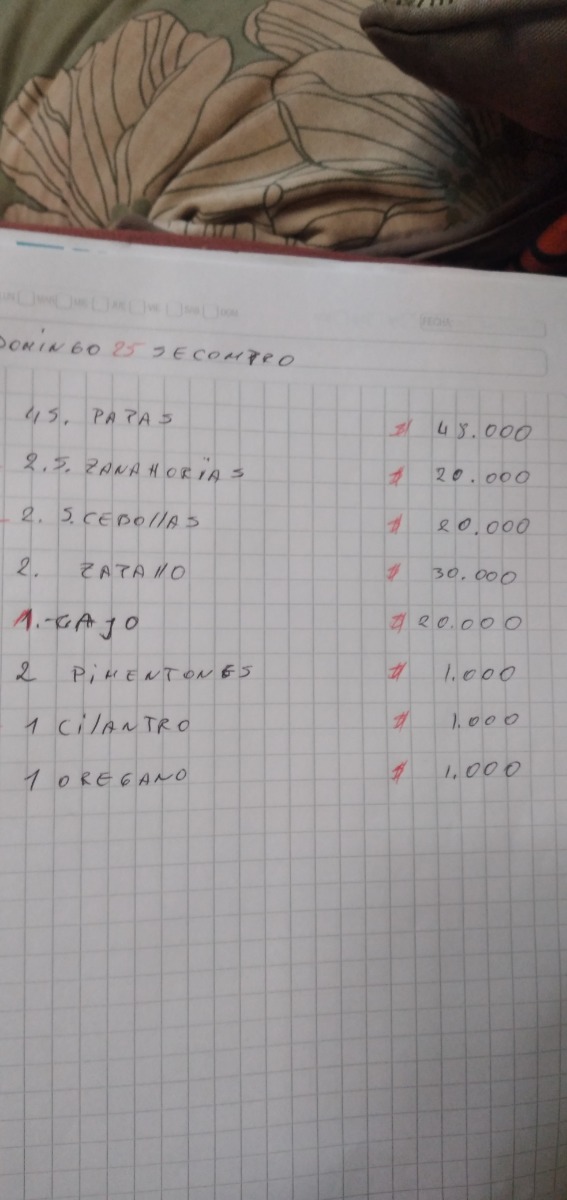 DOMINGO 25 SE COMPRO
4 S. PAPAS $ 48.000
2. S. ZANAHORIAS $ 20.000
2. S. CEBOllAS $ 20.000
2. ZAPAllO $ 30.000
1.- GAJO $ 20.000
2 PiMENTONES $ 1.000
1 CilANTRO $ 1.000
1 OREGANO $ 1.000